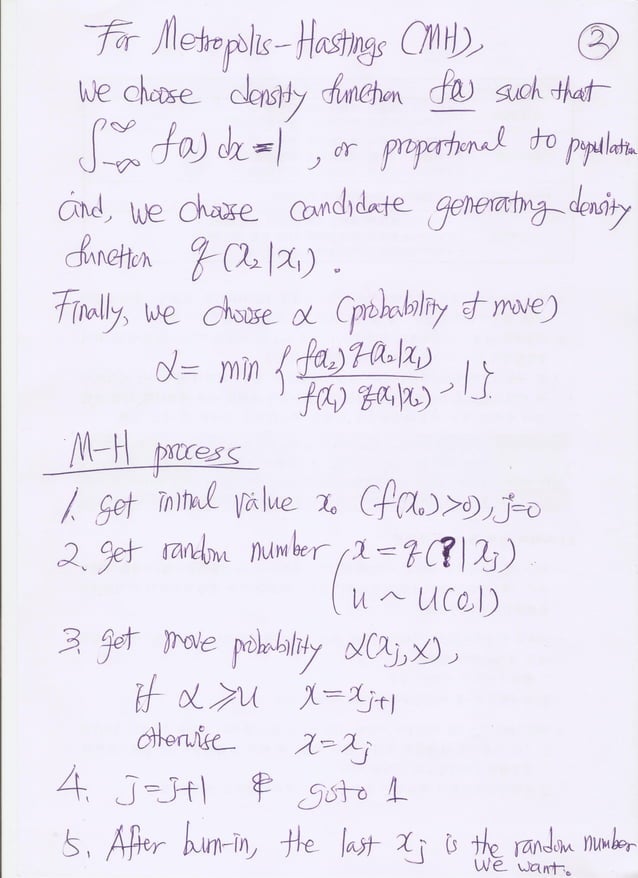 For Metropolis-Hastings (MH), ②
we choose density function f(x) such that
∫_{-∞}^{∞} f(x) dx = 1, or proportional to population
and, we choose candidate generating density
function q(x₂|x₁).
Finally, we choose α (probability of move)
α = min { f(x₂) q(x₂|x₁) / f(x₁) q(x₁|x₂), 1 }.
M-H process
1. get initial value x₀ (f(x₀)>0), j=0
2. get random number ( x = q(?|xⱼ)
u ~ U(0,1)
3. get move probability α(xⱼ, x),
if α ≥ u x = xⱼ₊₁
otherwise x = xⱼ
4. j = j+1 & goto 1
5. After burn-in, the last xⱼ is the random number
we want.